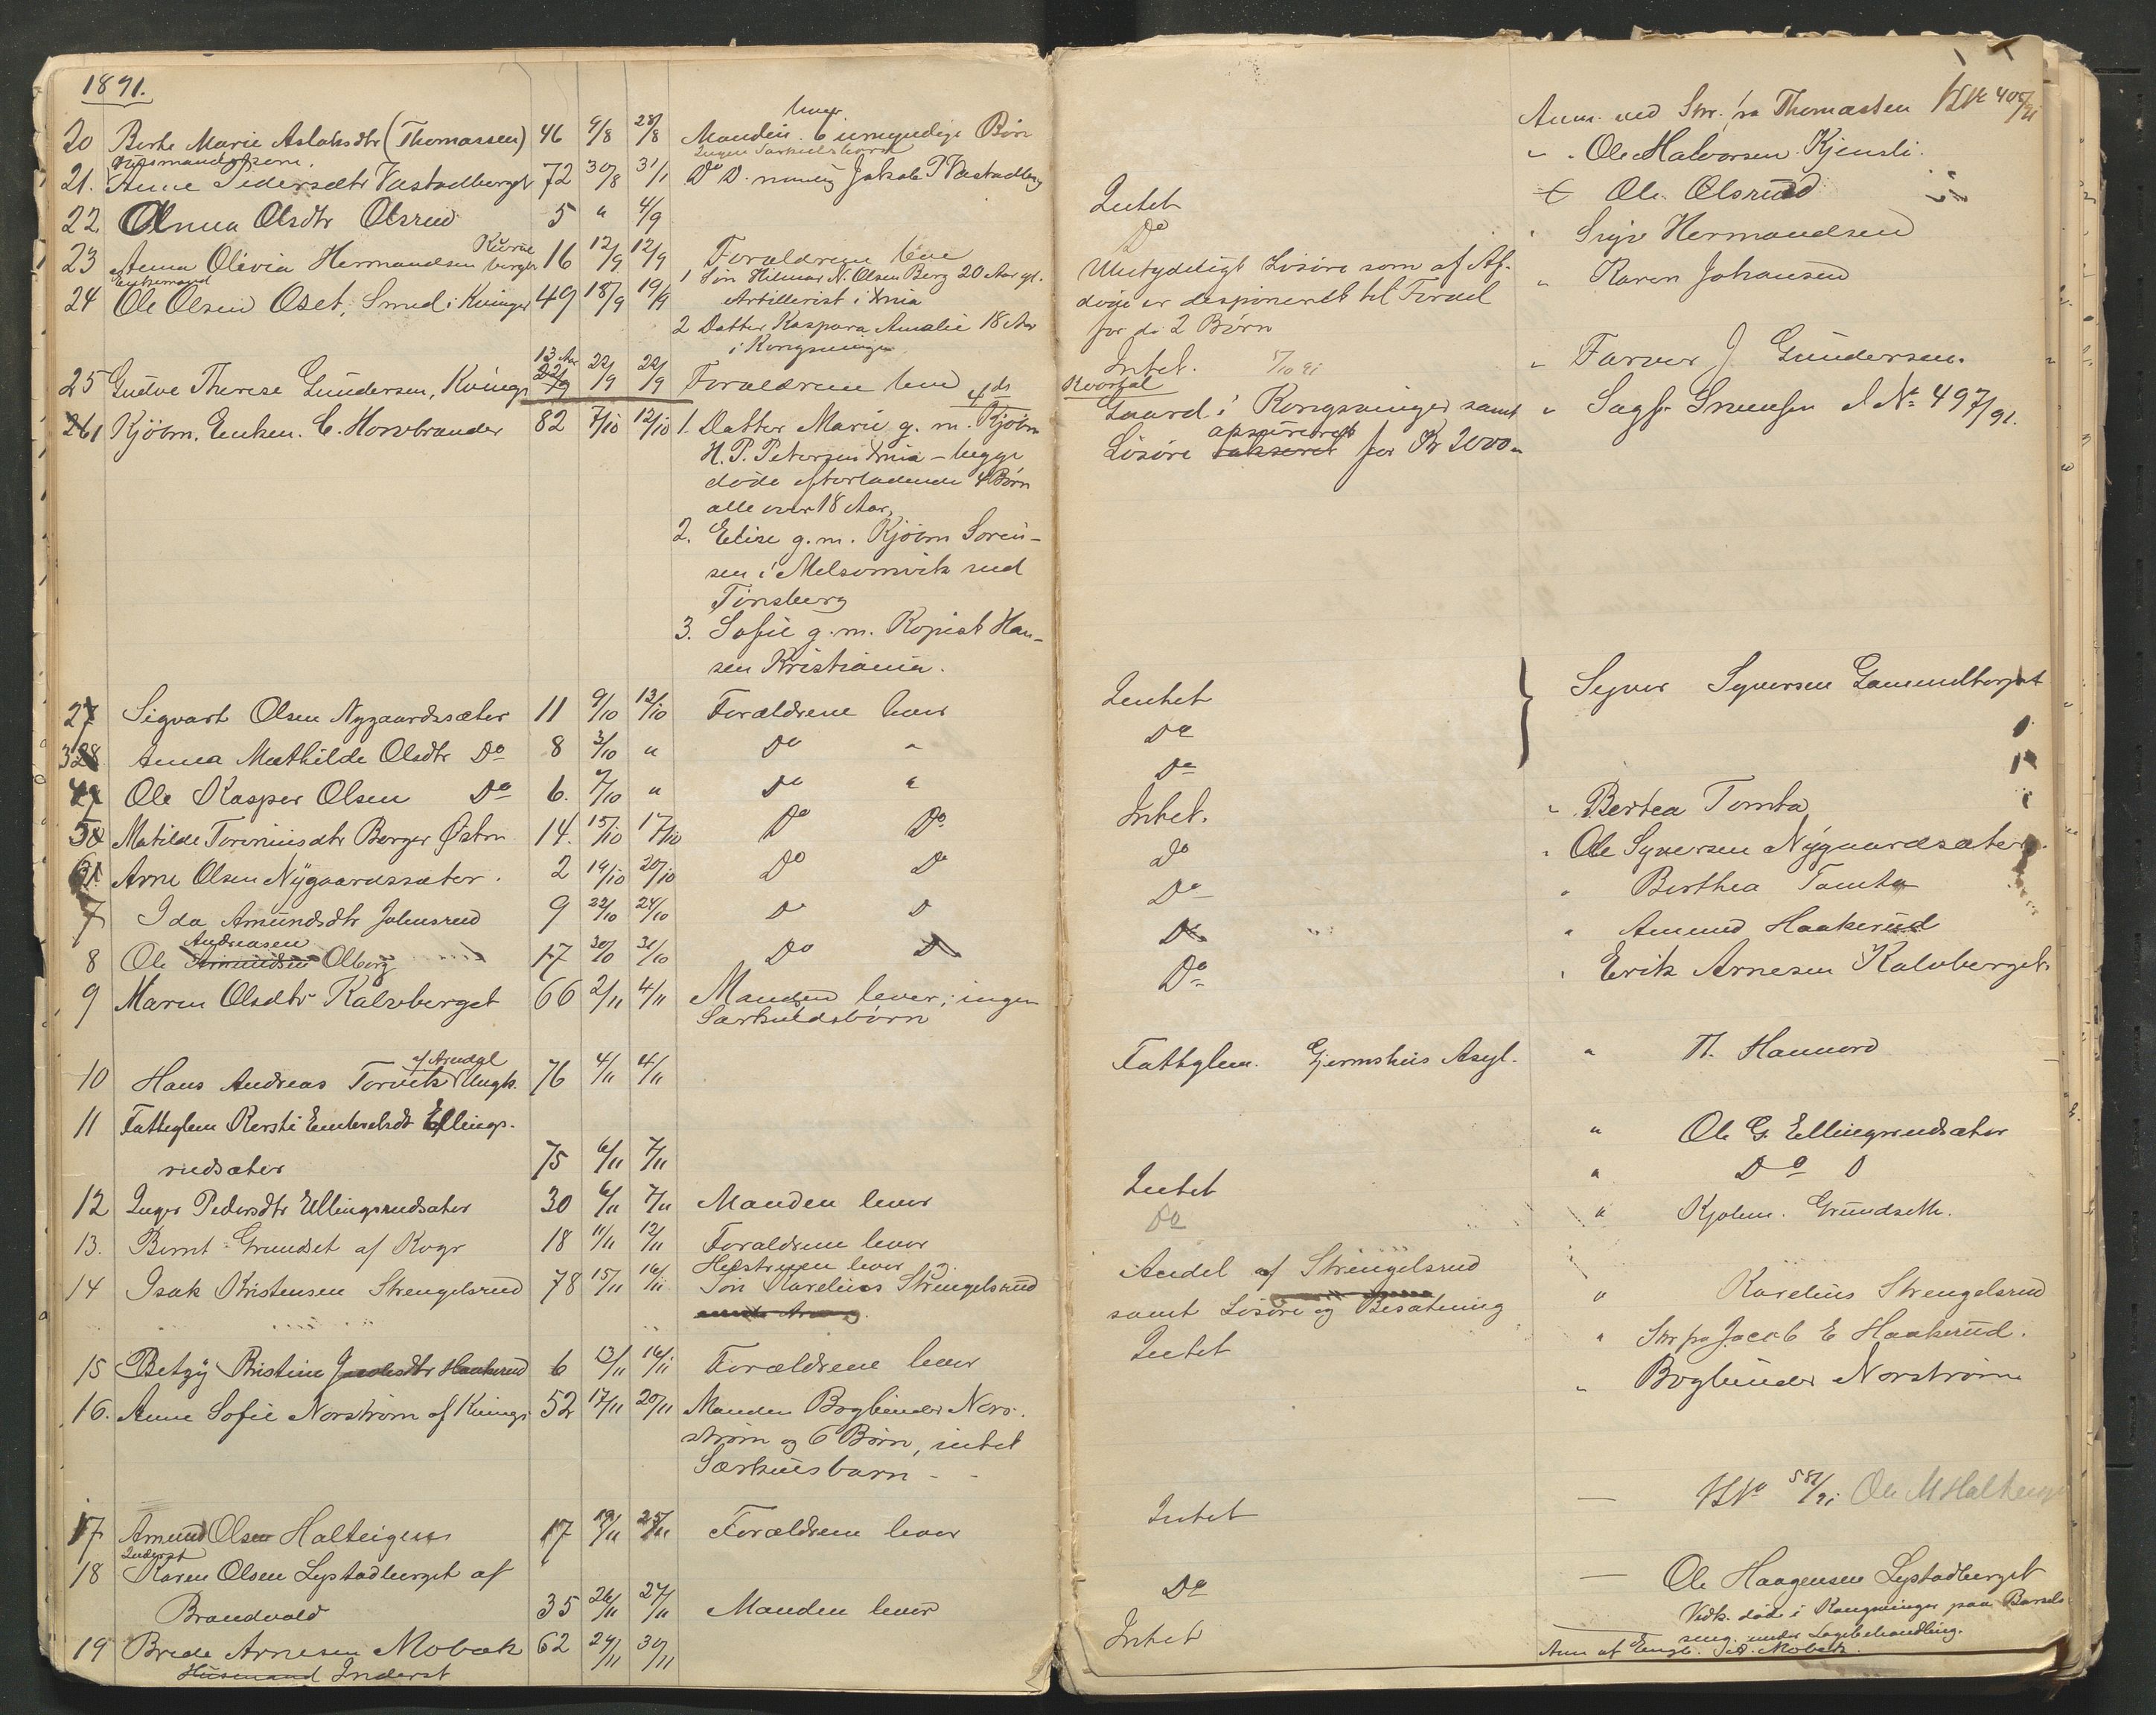 1891.
20 Berthe Marie Aslaksdtr (Thomassen) 46 9/8 28/8 Manden lever. 6 umyndige Børn
Anm. ved Thomassen 405/91
Ingen Særkuldsbørn
21. Anne Pedersdtr Vastadberget 72 30/8 31/8 Do navnlig Jakob P Vastadberg
" Ole Halvorsen Kjensli.
22 Anna Olsdtr Olsrud 5 " 4/9 Intet Ole Olsrud
23 Anna Olivia Hermandsen 16 12/9 12/9 Forældrene leve Do " Sigv Hermandsen
Enkemand
24 Ole Olsen Oset, Smed i Kvinger 49 18/9 19/9 1 Søn Hilmar N. Olsen Berg 20 Aar gl.
Artillerist i Xnia
2 Datter Kaspara Amalie 18 Aar
i Kongsvinger
Ubetydeligt Løsøre som af Af-
døde er desponeret til Fordel
for de 2 Børn
" Karen Johansen
13 Aar
25 Gudve Therese Gundersen, Kvings 22/9 22/9 Forældrene leve Intet. 5/10 91 " Farver J. Gundersen.
4de Kvartal
26 1 Kjøbm. Enken. C. Hornbrander 82 7/10 12/10 1. Datter Marie g. m. Kjøbm
H. P. Petersen Xnia – begge
døde efterladende 4 Børn
alle over 18 Aar.
2. Elise g. m. Kjøbm Soren-
sen i Melsomvik ved
Tønsberg
3. Sofie g. m. Kopist Han-
sen Kristiania.
Gaard i Kongsvinger samt
Løsøre assureret for Kr 2000
" Sagf. J No 497/91.
27 Sigvart Olsen Nygaardssæter 11 9/10 13/10 Forældrene lever Intet Syver Syversen Gammeltorpet
3 28 Anna Mathilde Olsdtr Do 8 3/10 " Do " Do
4 29 Ole Kasper Olsen Do 6. 7/10 " Do " Do
5 30 Matilde Toreniusdtr Berger Østm 14. 15/10 17/10 Do Do Intet. " Bertea Tomta
6 31 Arne Olsen Nygaardssæter. 2 19/10 20/10 Do Do Do " Ole Syversen Nygaardsæter.
7 Ida Amundsdtr Johnsrud 9 22/10 24/10 D D Do " Berthea Tomta
Andreasen
8 Ole Amundsen Olberg 17 30/10 31/10 Do D Do " Amund Haakerud
9 Maren Olsdtr Kalvberget 66 2/11 4/11 Manden lever; ingen
Særkuldsbørn
Do " Erik Arnesen Kalvberget.
af Arendal
10 Hans Andreas Torvik Ungk. 76 4/11 4/11 Fattiglem. Gjermshus Asyl. " H. Hannord
11 Fattiglem Kersti Embretsdt Ellings-
rudsæter 75 6/11 7/11 " Ole G. Ellingsrudsæter
12 Inger Pedersdtr Ellingsrudsæter 30 6/11 7/11 Manden lever Intet " Do D
13. Bernt Grundset af Kogr 18 11/11 12/11 Forældrene lever Do " Kjøbm. Grundseth.
Hustruen lever
14 Isak Kristensen Strengelsrud 78 15/11 16/11 Søn Karelius Strengelsrud
Andel af Strengelsrud
samt Løsøre og Besætning
" Karelius Strengelsrud
15 Betzy Kristine Jacobsdtr Haakerud 6 13/11 16/11 Forældrene lever Intet " Skr fra Jacob E Haakerud.
16. Anne Sofie Norstrøm af Kvings 52 17/11 20/11 Manden Bogbinder Nor-
strøm og 6 Børn, intet
Særkuisbarn
" Bogbinder Norstrøm
17 Amund Olsen Halteigen 17 19/11 25/11 Forældrene lever Intet – JNo 581/91 Ole M Halteigen
Inderst
18 Karen Olsen Lystadberget af
Brandvold 35 26/11 27/11 Manden lever Do – Ole Haagensen Lystadberget
Vedk. død i Kongsvinger paa Barsels-
seng under Lægebehandling.
19 Brede Arnesen Mobæk 62 24/11 30/11 Intet Anm af Mobæk.
Husmand Inderst